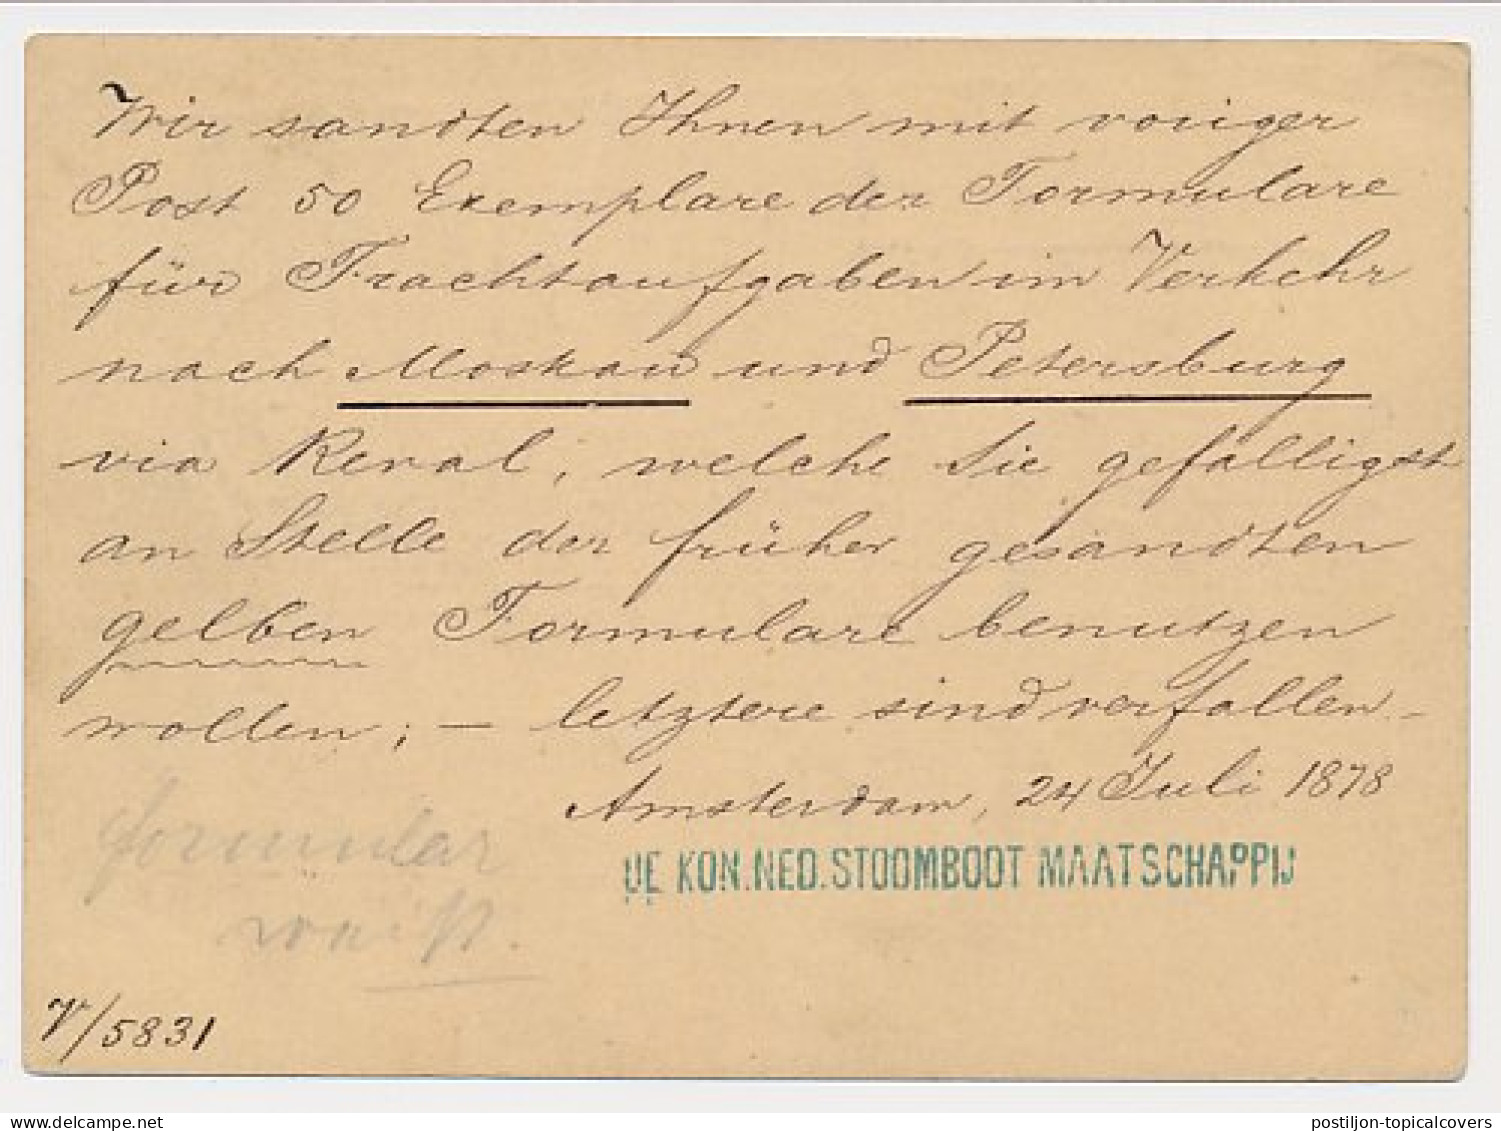 Wir sandten Ihnen mit voriger
Post 50 Exemplare der Formulare
für Frachtaufgaben im Verkehr
nach Moskau und Petersburg
via Reval, welche Sie gefälligst
an Stelle der früher gesandten
gelben Formulare benutzen
wollen; — letztere sind verfallen. —
Amsterdam, 24 Juli 1878
DE KON. NED. STOOMBOOT MAATSCHAPPIJ
Formular
V/5831
delcampe.net
postiljon-topicalcovers